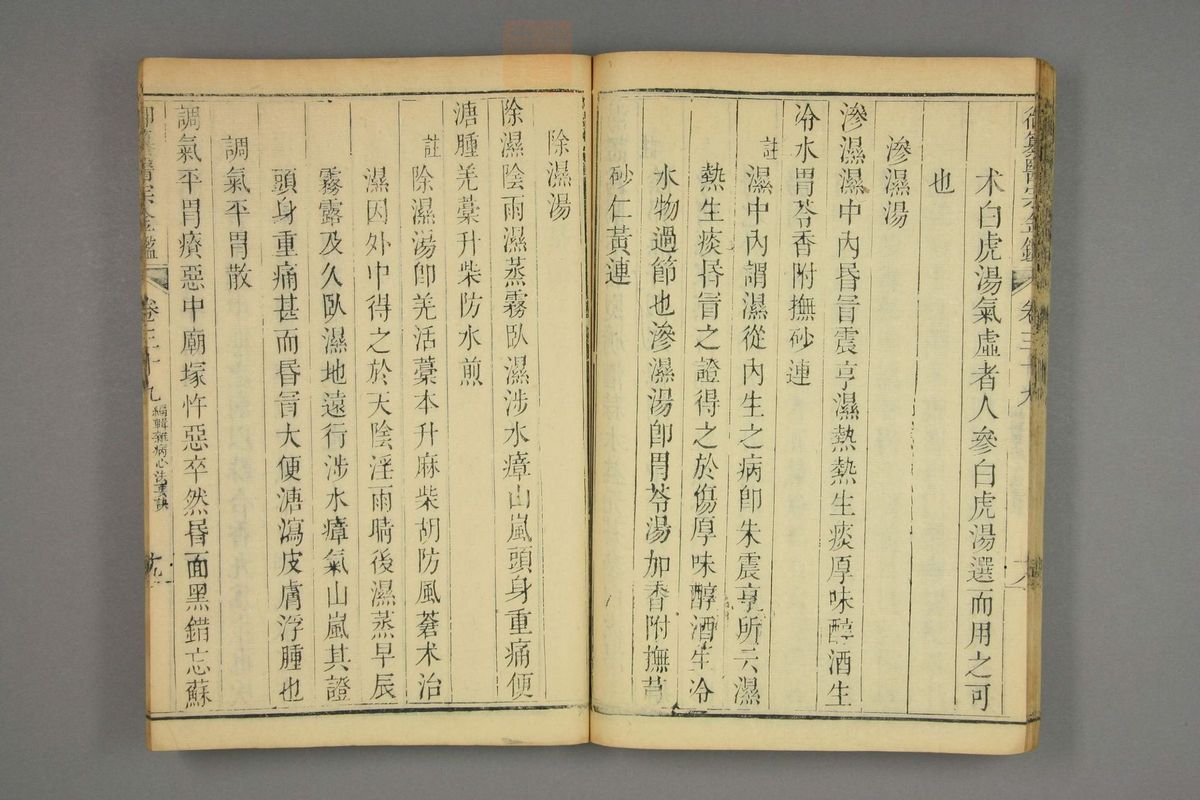 御纂醫宗金鑑 卷三十九
朮白虎湯氣虛者人參白虎湯選而用之可
也
滲濕湯
滲濕濕中內昏冒震亨濕熱熱生痰厚味醇酒生
冷水胃苓香附撫砂連
註濕中內謂濕從內生之病卽朱震亨所云濕
熱生痰昏冒之證得之於傷厚味醇酒生冷
水物過節也滲濕湯卽胃苓湯加香附撫芎
砂仁黃連
除濕湯
除濕陰雨濕蒸霧臥濕涉水瘴山嵐頭身重痛便
溏腫羌藁升柴防水煎
註除濕湯卽羌活藁本升麻柴胡防風蒼朮治
濕因外中得之於天陰淫雨晴後濕蒸早辰
霧露及久臥濕地遠行涉水瘴氣山嵐其證
頭身重痛甚而昏冒大便溏瀉皮膚浮腫也
調氣平胃散
調氣平胃療惡中廟塚忤惡卒然昏面黑錯忘蘇
御纂醫宗金鑑 卷三十九 編輯雜病心法要訣